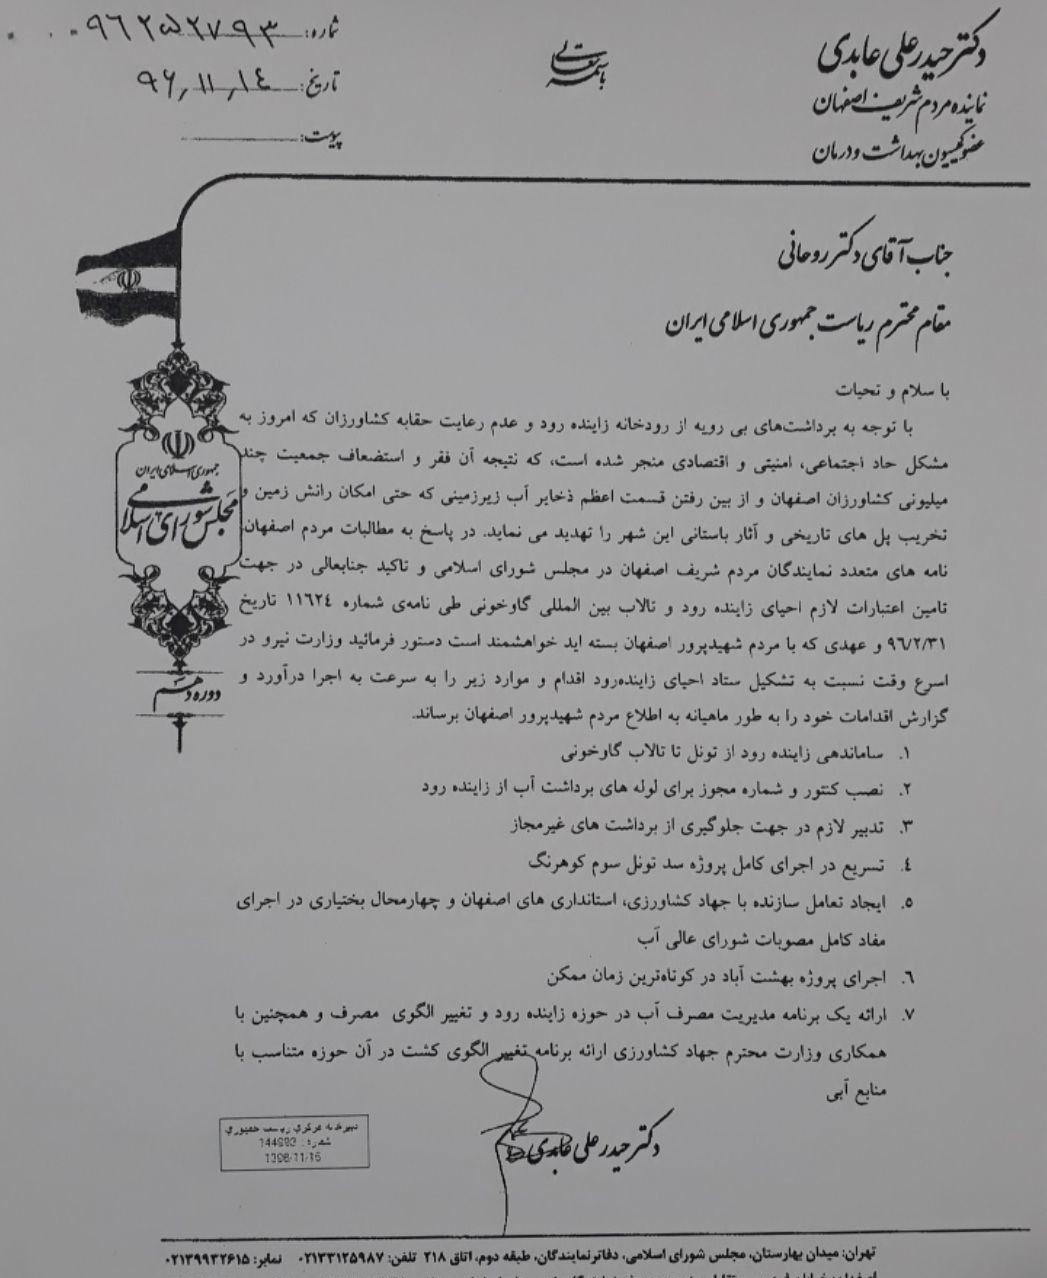 دکتر حیدر علی عابدی
نماینده مردم شریف اصفهان
عضو کمیسیون بهداشت و درمان
باسمه تعالی
شماره: ۹۶۲۵۲۷۹۳
تاریخ: ۹۶,۱۱,۱٤
پیوست:
جناب آقای دکتر روحانی
مقام محترم ریاست جمهوری اسلامی ایران
با سلام و تحیات
با توجه به برداشت‌های بی رویه از رودخانه زاینده رود و عدم رعایت حقابه کشاورزان که امروز به
مشکل حاد اجتماعی، امنیتی و اقتصادی منجر شده است، که نتیجه آن فقر و استضعاف جمعیت چند
میلیونی کشاورزان اصفهان و از بین رفتن قسمت اعظم ذخایر آب زیرزمینی که حتی امکان رانش زمین و
تخریب پل های تاریخی و آثار باستانی این شهر را تهدید می نماید. در پاسخ به مطالبات مردم اصفهان،
نامه های متعدد نمایندگان مردم شریف اصفهان در مجلس شورای اسلامی و تاکید جنابعالی در جهت
تامین اعتبارات لازم احیای زاینده رود و تالاب بین المللی گاوخونی طی نامه‌ی شماره ۱۱٦۲٤ تاریخ
۹٦/۲/۳۱ و عهدی که با مردم شهیدپرور اصفهان بسته اید خواهشمند است دستور فرمائید وزارت نیرو در
اسرع وقت نسبت به تشکیل ستاد احیای زاینده‌رود اقدام و موارد زیر را به سرعت به اجرا درآورد و
گزارش اقدامات خود را به طور ماهیانه به اطلاع مردم شهیدپرور اصفهان برساند.
۱. ساماندهی زاینده رود از تونل تا تالاب گاوخونی
۲. نصب کنتور و شماره مجوز برای لوله های برداشت آب از زاینده رود
۳. تدبیر لازم در جهت جلوگیری از برداشت های غیرمجاز
٤. تسریع در اجرای کامل پروژه سد تونل سوم کوهرنگ
۵. ایجاد تعامل سازنده با جهاد کشاورزی، استانداری های اصفهان و چهارمحال بختیاری در اجرای
مفاد کامل مصوبات شورای عالی آب
٦. اجرای پروژه بهشت آباد در کوتاه‌ترین زمان ممکن
۷. ارائه یک برنامه مدیریت مصرف آب در حوزه زاینده رود و تغییر الگوی مصرف و همچنین با
همکاری وزارت محترم جهاد کشاورزی ارائه برنامه تغییر الگوی کشت در آن حوزه متناسب با
منابع آبی
دکتر حیدر علی عابدی
جمهوری اسلامی ایران
مجلس شورای اسلامی
دوره دهم
دبیرخانه مرکزی ریاست جمهوری
شماره:
1396/11/15
تهران: میدان بهارستان، مجلس شورای اسلامی، دفاتر نمایندگان، طبقه دوم، اتاق ۲۱۸ تلفن: ۰۲۱۳۳۱۲۵۹۸۷ نمابر: ۰۲۱۳۹۹۳۲۶۱۵